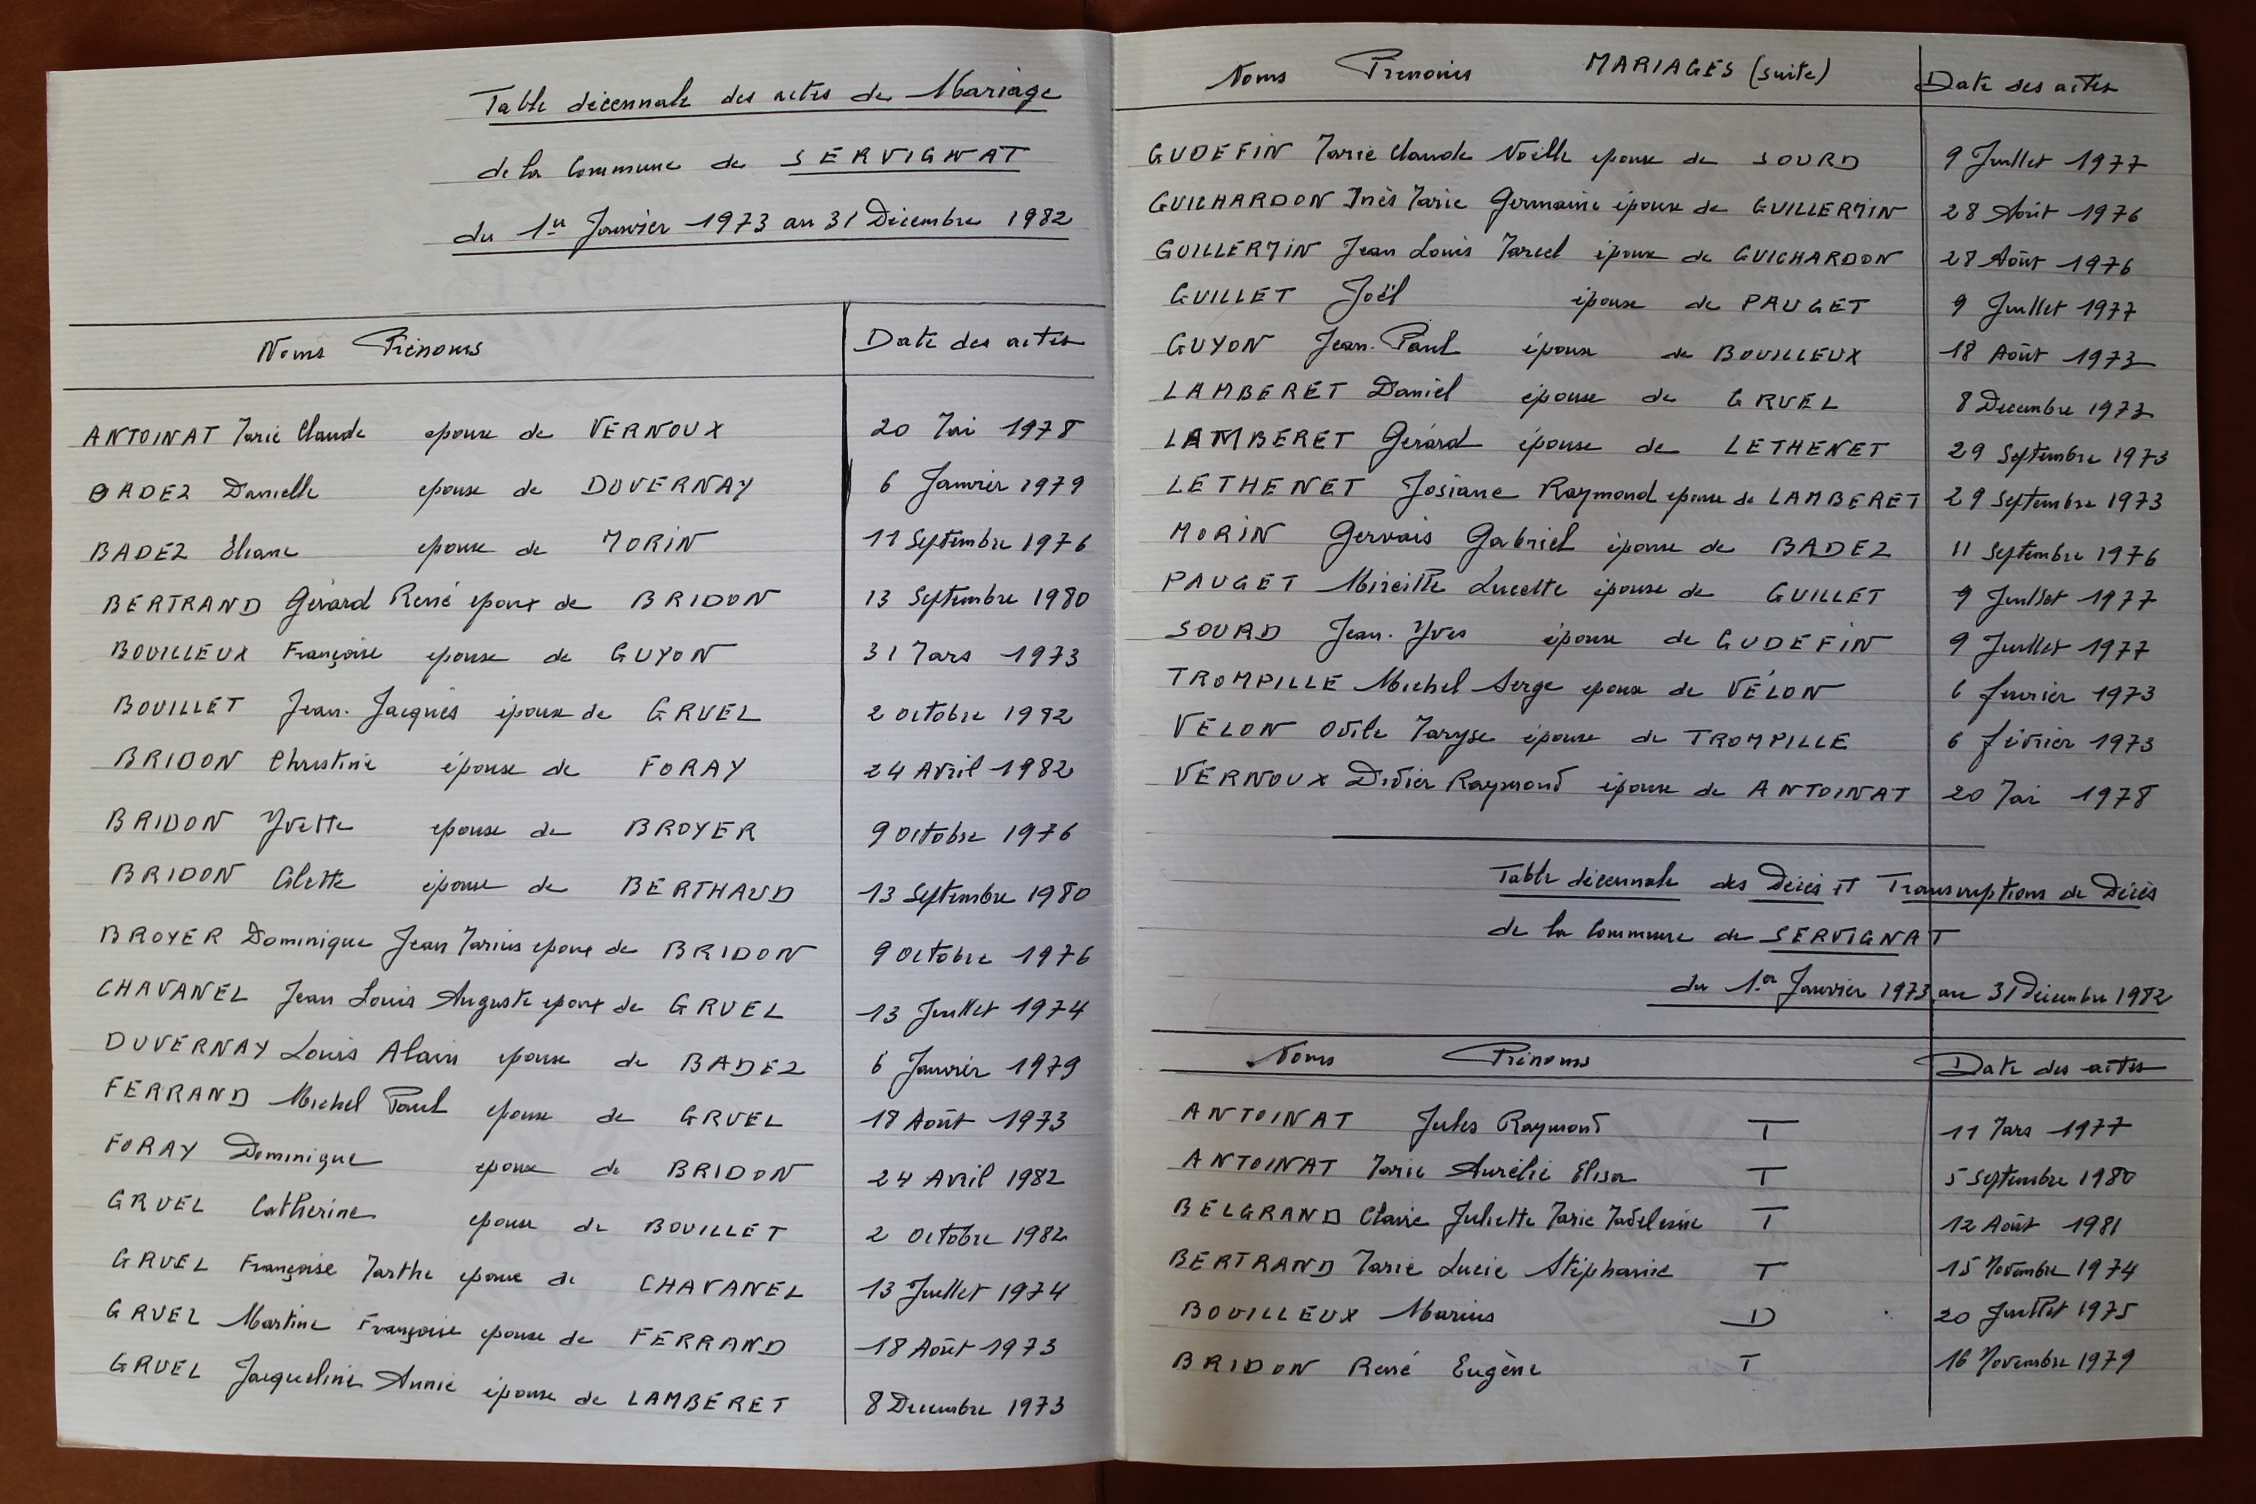 Table décennale des actes de Mariage
de la Commune de SERVIGNAT
du 1er Janvier 1973 au 31 Décembre 1982
Noms Prénoms Date des actes
ANTOINAT Marie Claude epouse de VERNOUX 20 Mai 1978
BADEZ Danielle epouse de DUVERNAY 6 Janvier 1979
BADEZ Eliane epouse de MORIN 11 Septembre 1976
BERTRAND Gérard René epoux de BRIDON 13 Septembre 1980
BOUILLEUX Françoise epouse de GUYON 31 Mars 1973
BOUILLET Jean-Jacques époux de GRUEL 2 octobre 1982
BRIDON Christine épouse de FORAY 24 Avril 1982
BRIDON Yvette epouse de BROYER 9 octobre 1976
BRIDON Colette épouse de BERTHAUD 13 Septembre 1980
BROYER Dominique Jean Marius epoux de BRIDON 9 octobre 1976
CHAVANEL Jean Louis Auguste epoux de GRUEL 13 Juillet 1974
DUVERNAY Louis Alain epoux de BADEZ 6 Janvier 1979
FERRAND Michel Paul epoux de GRUEL 18 Août 1973
FORAY Dominique epoux de BRIDON 24 Avril 1982
GRUEL Catherine epouse de BOUILLET 2 octobre 1982
GRUEL Françoise Marthe epouse de CHAVANEL 13 Juillet 1974
GRUEL Martine Françoise epouse de FERRAND 18 Août 1973
GRUEL Jacqueline Annie épouse de LAMBERET 8 Decembre 1973
Noms Prenoms MARIAGES (suite) Date des actes
GUDEFIN Marie Claude Noëlle epouse de SOURD 9 Juillet 1977
GUICHARDON Inès Marie Germaine épouse de GUILLERMIN 28 Août 1976
GUILLERMIN Jean Louis Marcel époux de GUICHARDON 28 Août 1976
GUILLET Joël époux de PAUGET 9 Juillet 1977
GUYON Jean-Paul époux de BOUILLEUX 18 Août 1973
LAMBERET Daniel époux de GRUEL 8 Decembre 1973
LAMBERET Gérard époux de LETHENET 29 Septembre 1973
LETHENET Josiane Raymond epouse de LAMBERET 29 Septembre 1973
MORIN Gervais Gabriel époux de BADEZ 11 Septembre 1976
PAUGET Mireille Lucette épouse de GUILLET 9 Juillet 1977
SOURD Jean-Yves époux de GUDEFIN 9 Juillet 1977
TROMPILLE Michel Serge epoux de VÉLON 6 fevrier 1973
VELON Odile Maryse épouse de TROMPILLE 6 février 1973
VERNOUX Didier Raymond époux de ANTOINAT 20 Mai 1978
Table décennale des Décès et Transcriptions de Décès
de la Commune de SERVIGNAT
du 1er Janvier 1973 au 31 Décembre 1982
Noms Prénoms Date des actes
ANTOINAT Jules Raymond T 11 Mars 1977
ANTOINAT Marie Aurélie Elisa T 5 Septembre 1980
BELGRAND Claire Juliette Marie Madeleine T 12 Août 1981
BERTRAND Marie Lucie Stéphanie T 15 Novembre 1974
BOUILLEUX Marius D 20 Juillet 1975
BRIDON René Eugène T 16 Novembre 1979